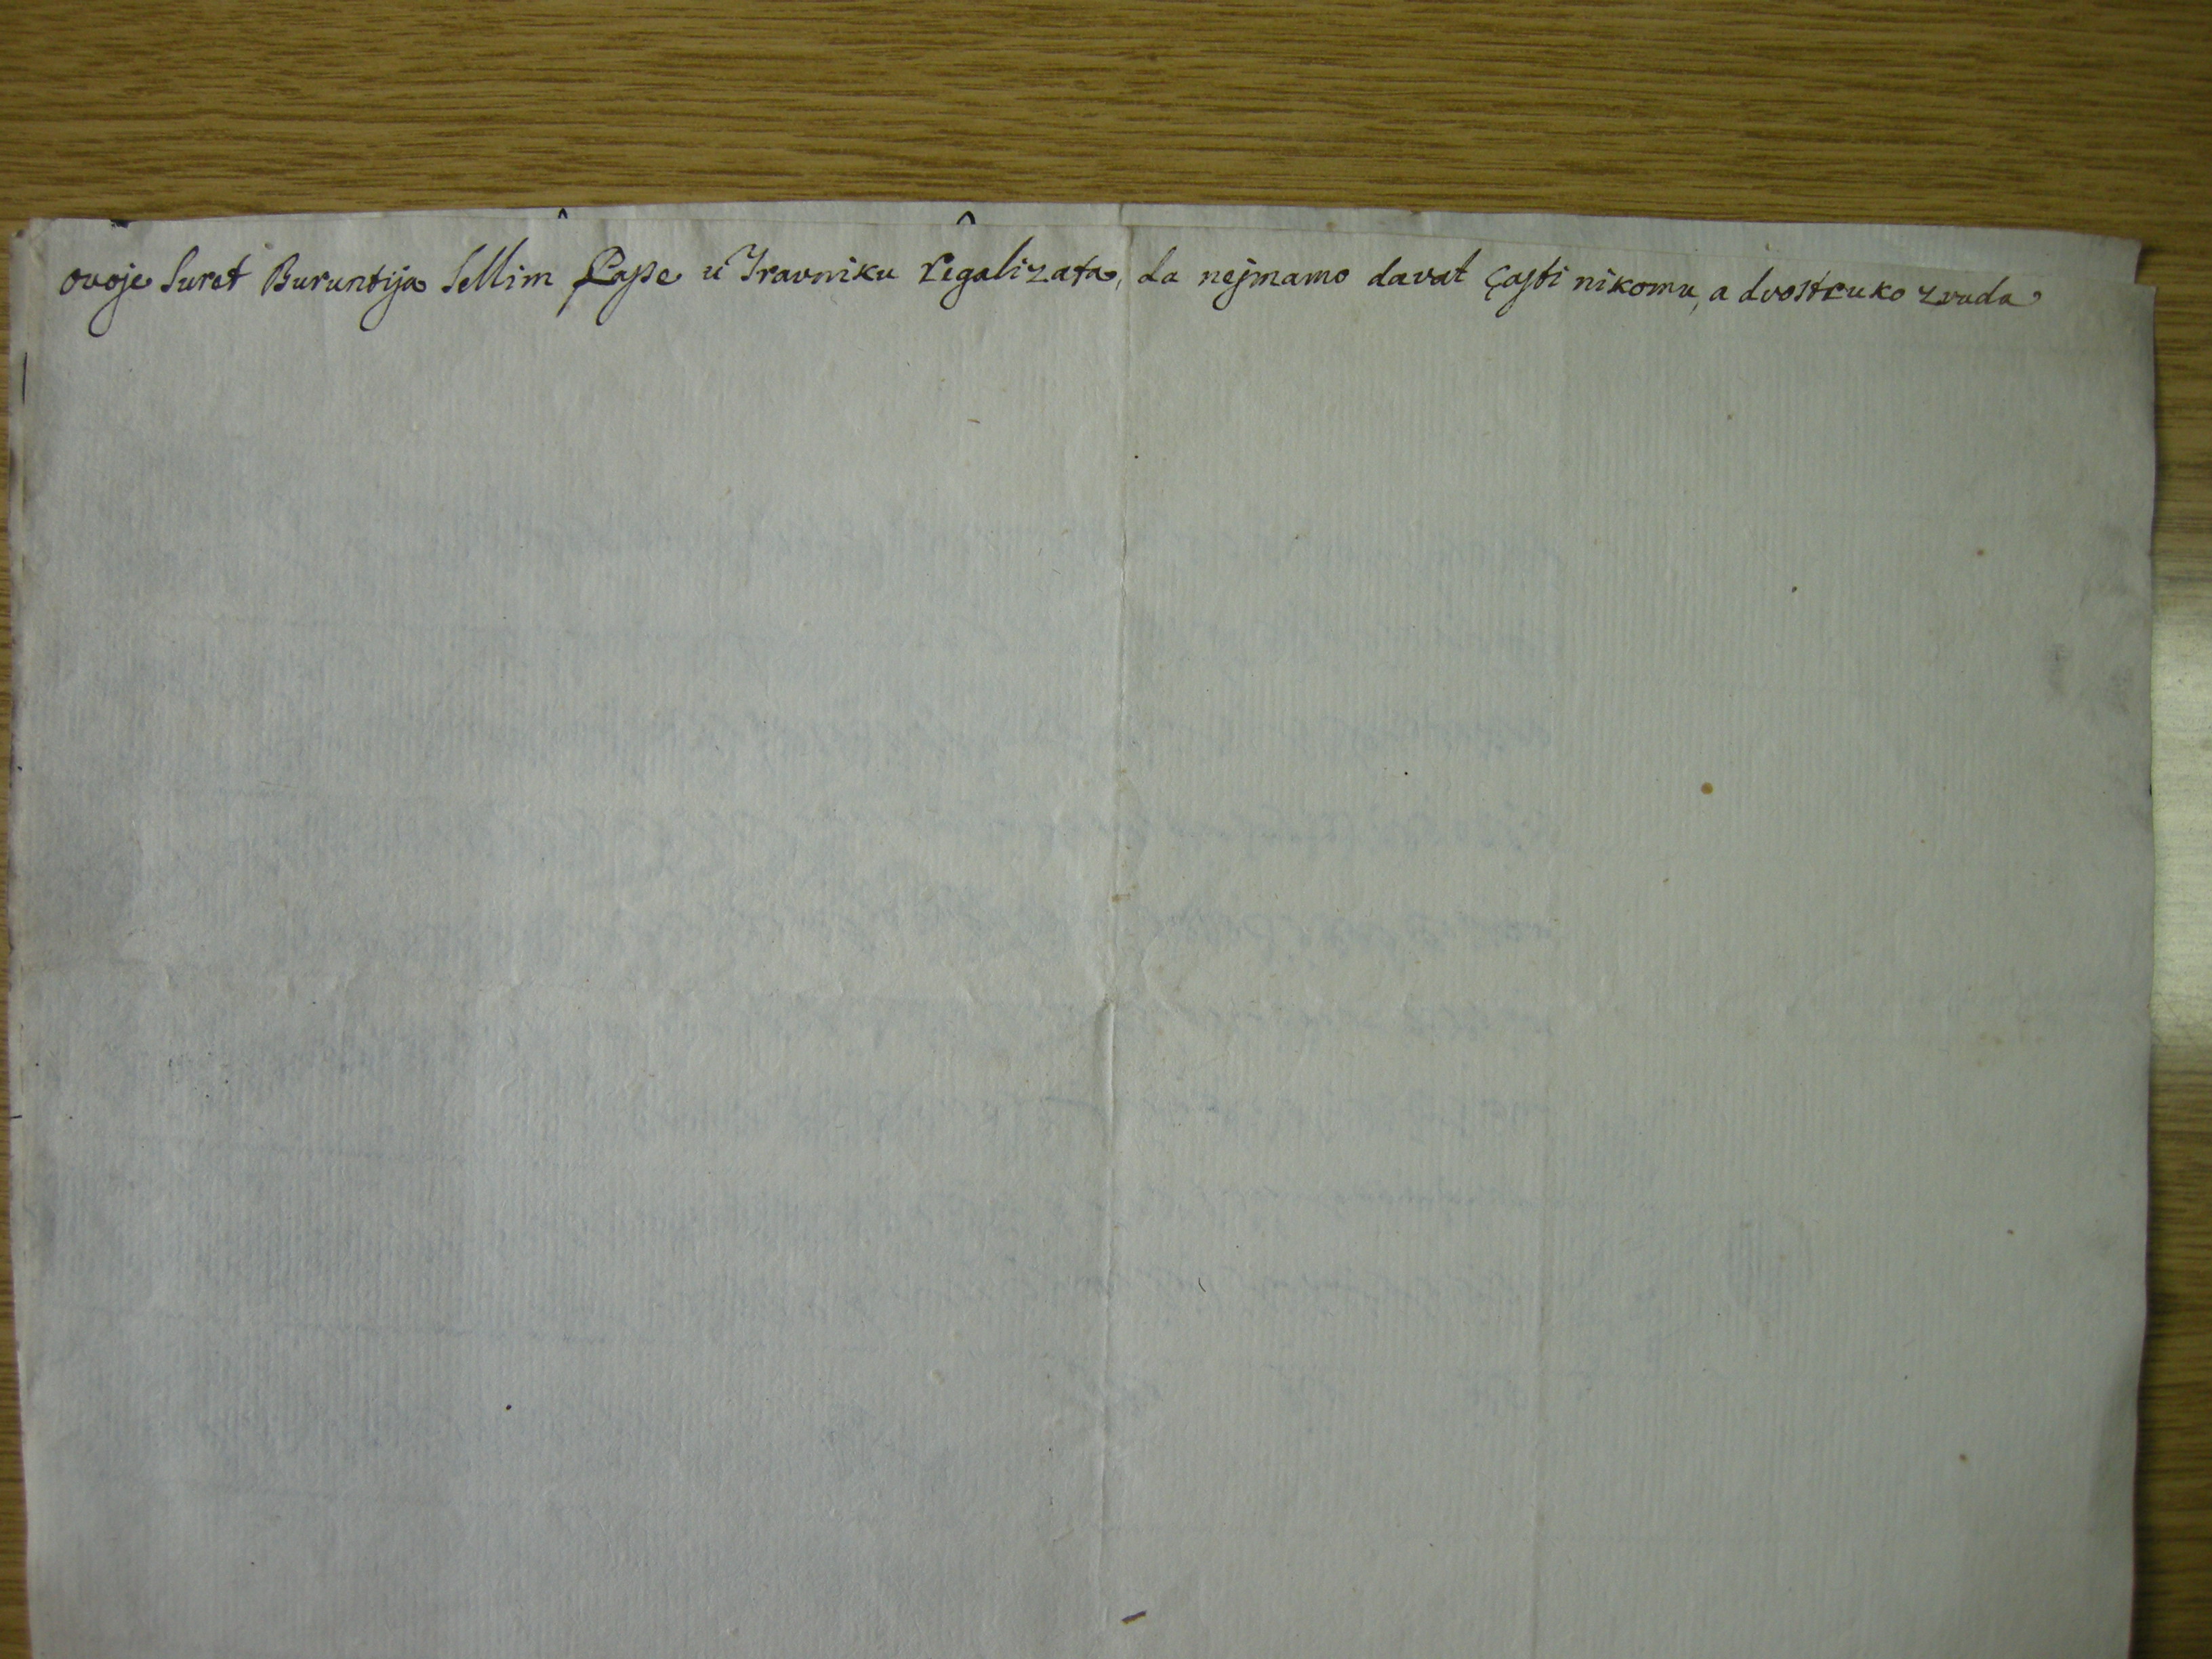 ovoje Suret Buruntija Sellim Passe u Travniku Legalizata, da nejmamo davat Çasti nikomu, a dvostruko zvuda